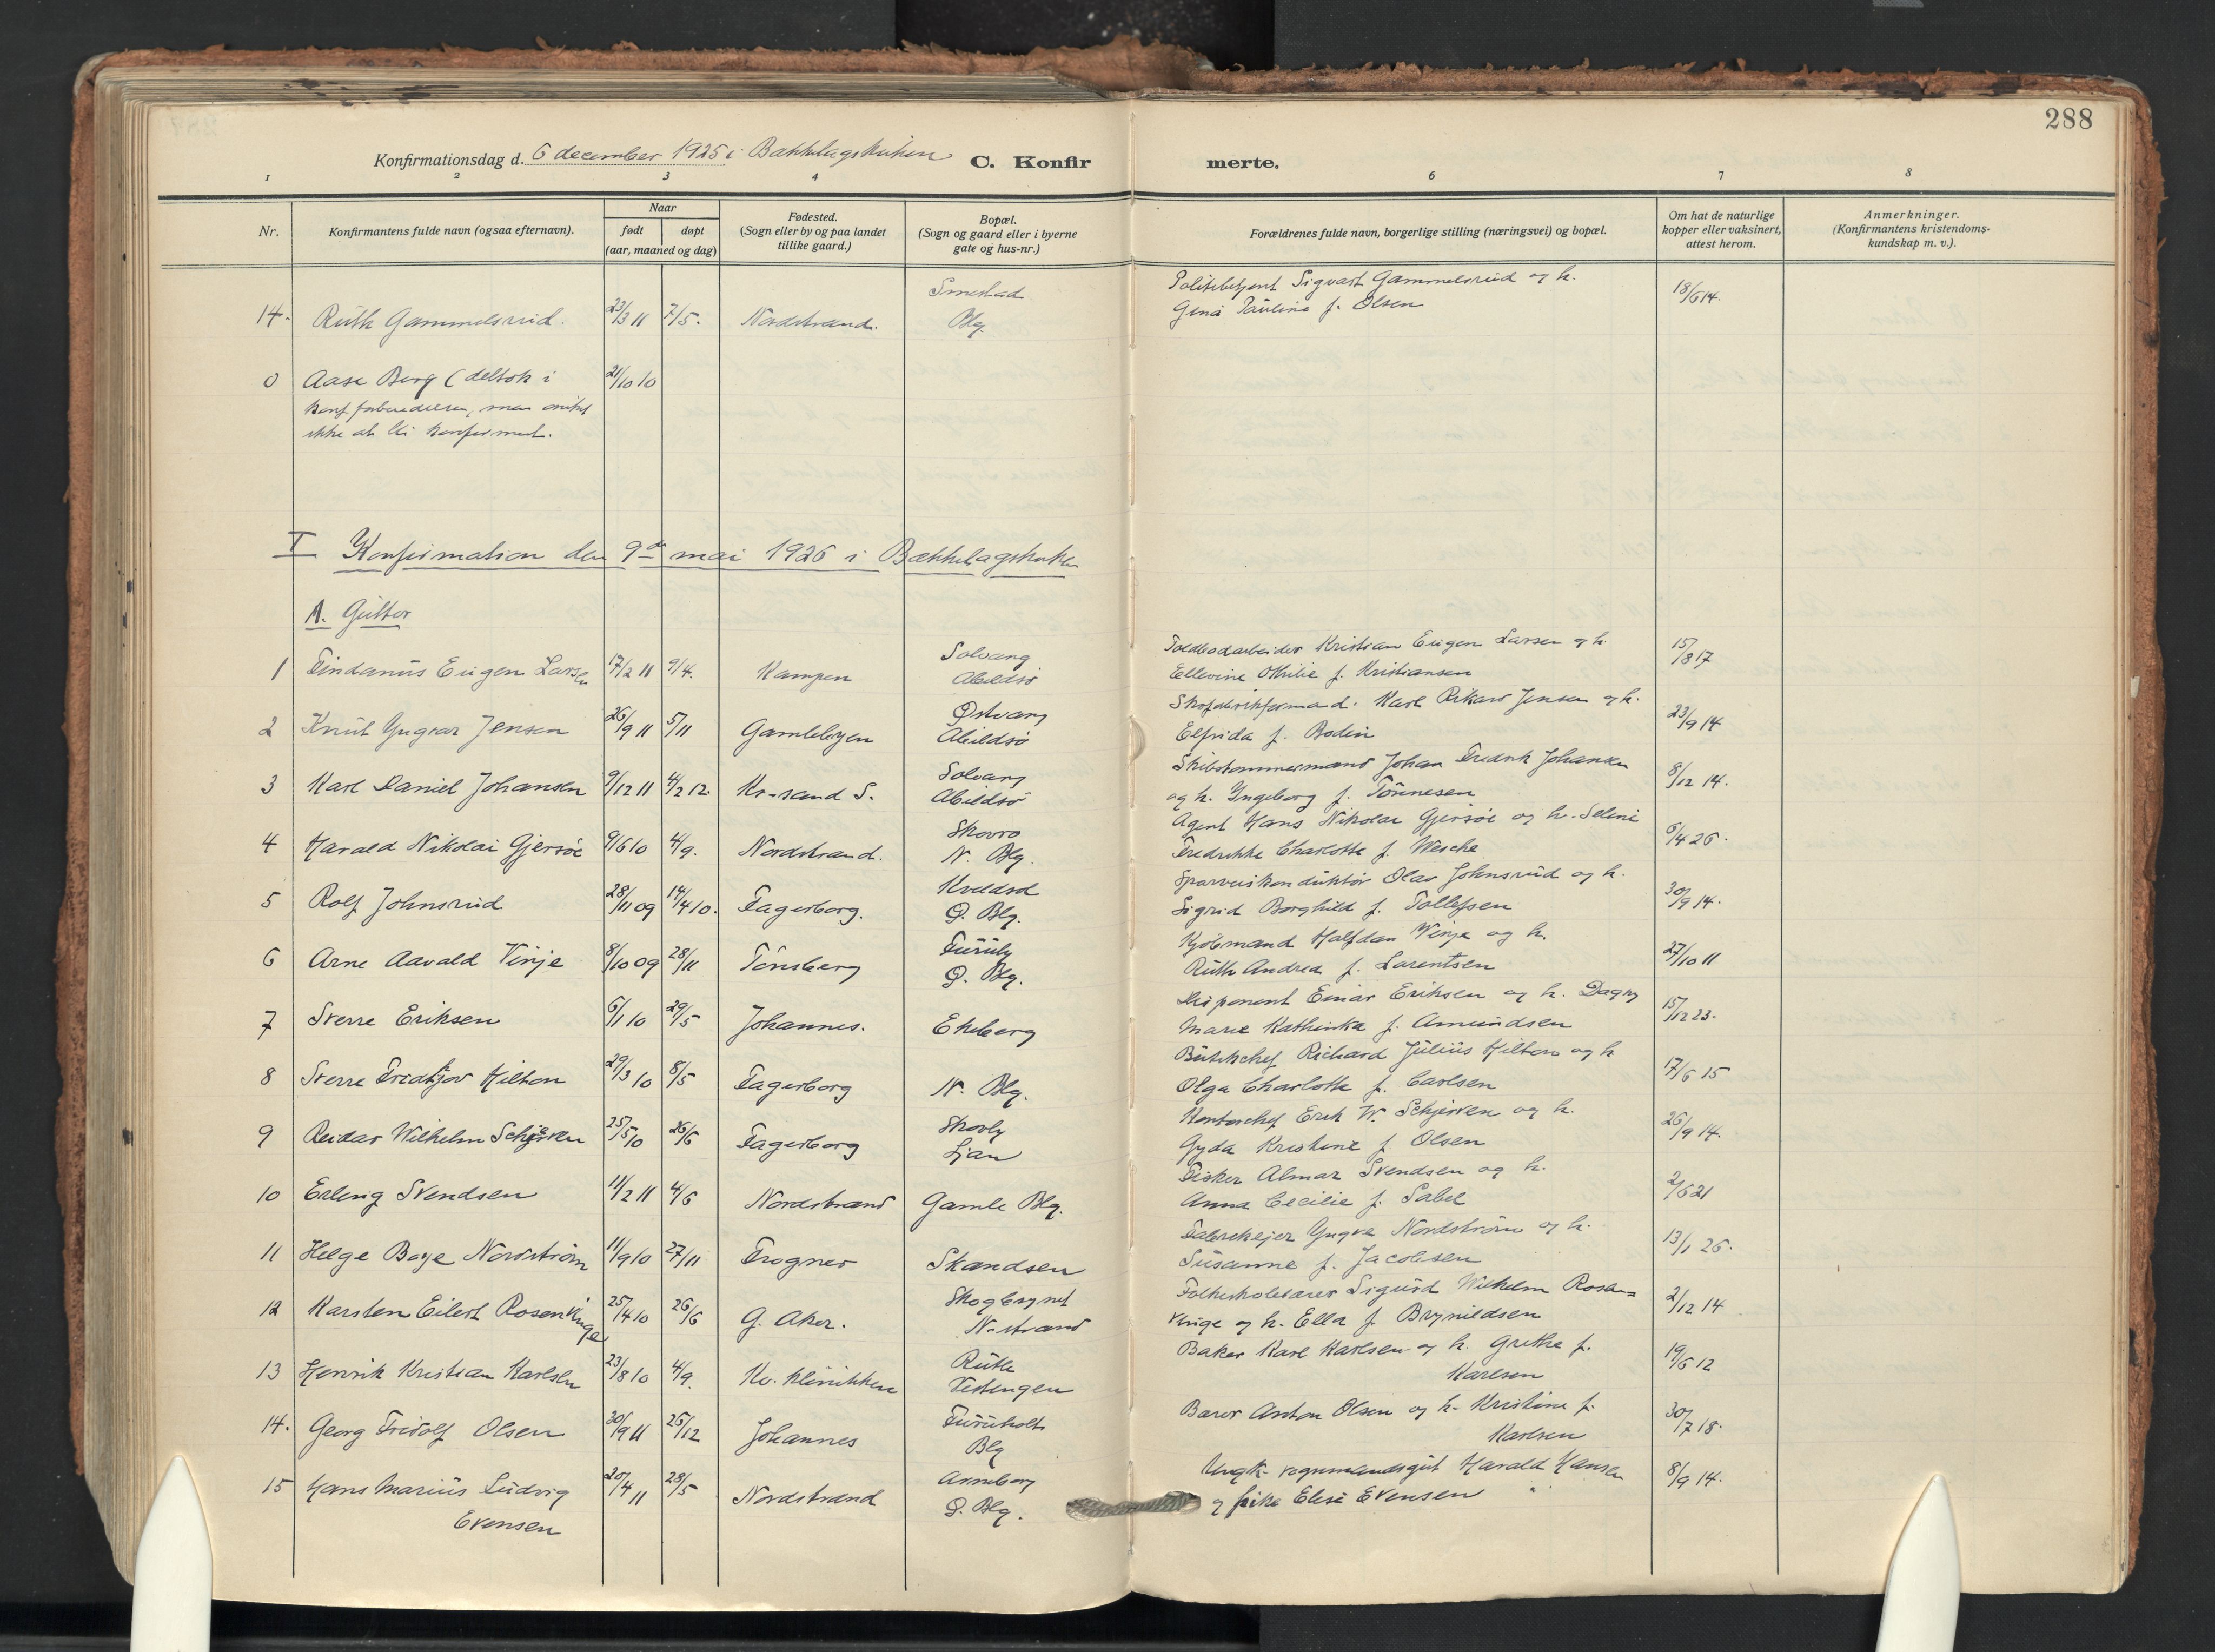 288
Konfirmationsdag d. 6 december 1925 i Bækkelagskirken C. Konfirmerte.
1 2 3 4 6 7 8
Nr. Konfirmantens fulde navn (ogsaa efternavn). Naar født døpt (aar, maaned og dag) Fødested. (Sogn eller by og paa landet tillike gaard.) Bopæl. (Sogn og gaard eller i byerne gate og hus-nr.) Forældrenes fulde navn, borgerlige stilling (næringsvei) og bopæl. Om hat de naturlige kopper eller vaksinert, attest herom. Anmerkninger. (Konfirmantens kristendomskundskap m. v.).
Smestad Politibetjent Sigvart Gammelsrud og h. 18/6 14.
14. Ruth Gammelsrud. 23/3 11 7/5. Nordstrand. Blg. Gina Pauline f. Olsen
0 Aase Berg (deltok i 21/10 10
konf.forberedelsen, men ønsket
ikke at bli konfirmert.
I Konfirmation den 9de mai 1926 i Bækkelagskirken
A. Gutter
Solvang Toldbodarbeider Kristian Eugen Larsen og h. 15/8 17
1 Findanus Eugen Larsen 17/2 11 9/4. Kampen Abildsø Ellevine Othilie f. Kristiansen
Østvang Skofabrikformand. Karl Rikard Jensen og h. 23/9 14
2 Knut Yngvar Jensen 26/9 11 5/11 Gamlebyen Abildsø Elfrida f. Bodin
Solvang Skibstømmermand Johan Fredrik Johansen 8/12 14.
3 Karl Daniel Johansen 9/12 11 4/2 12. Kr-sand S. Abildsø og h. Ingeborg f. Tönnesen
Skovro Agent Hans Nikolai Gjersøe og h. Seline 6/4 26.
4 Harald Nikolai Gjersøe 9/6 10 4/9. Nordstrand. N. Blg. Fredrikke Charlotte f. Wesche
Kveldsol Sporveiskonduktør Olav Johnsrud og h. 30/9 14.
5 Rolf Johnsrud 28/11 09 14/4 10. Fagerborg. Ø. Blg. Sigrid Borghild f. Tollefsen
Furuly Kjøbmand Halfdan Vinje og h. 27/10 11
6 Arne Aavald Vinje 8/10 09 28/11 Tönsberg Ø. Blg. Ruth Andrea f. Larentsen
Disponent Einar Eriksen og h. Dagny 15/12 23.
7 Sverre Eriksen 6/1 10 29/5 Johannes. Ekeberg Marie Kathinka f. Amundsen
Butikchef Richard Julius Hilton og h 17/6 15
8 Sverre Fredtjov Hilton 29/3 10 8/5 Fagerborg N. Blg. Olga Charlotte f. Carlsen
Skovly Kontorchef Erik W. Schjerven og h. 26/9 14.
9 Reidar Wilhelm Schjerven 25/5 10 26/6 Fagerborg Ljan Gyda Kristine f. Olsen
Fisker Almar Svendsen og h. 2/6 21
10 Erling Svendsen 11/2 11 4/6 Nordstrand Gamle Blg. Anna Cecilie f. Sabel
Fabrikejer Yngve Nordström og h. 13/1 26.
11 Helge Boye Nordström 11/9 10 27/11 Frogner Skandsen Susanne f. Jacobsen
Skogbrynet Folkeskolelærer Sigurd Wilhelm Rosen= 2/12 14
12 Karsten Eilert Rosenvinge 25/4 10 26/6 G. Aker. N-strand vinge og h. Ella f. Brynildsen
Ruth Baker Karl Karlsen og h. Grethe f. 19/6 12
13 Henrik Kristian Karlsen 23/8 10 4/9. Kv. klinikken Vestengen Karlsen
Furuholt Bærer Anton Olsen og h. Kristine f. 30/7 18.
14. Georg Fridolf Olsen 30/9 11 26/12 Johannes Blg Karlsen
Anneborg Ungk. vognmandsgut Harald Hansen 8/9 14.
15 Hans Marius Ludvig 20/4 11 28/5 Nordstrand Ø. Blg. og pike Elise Evensen
Evensen